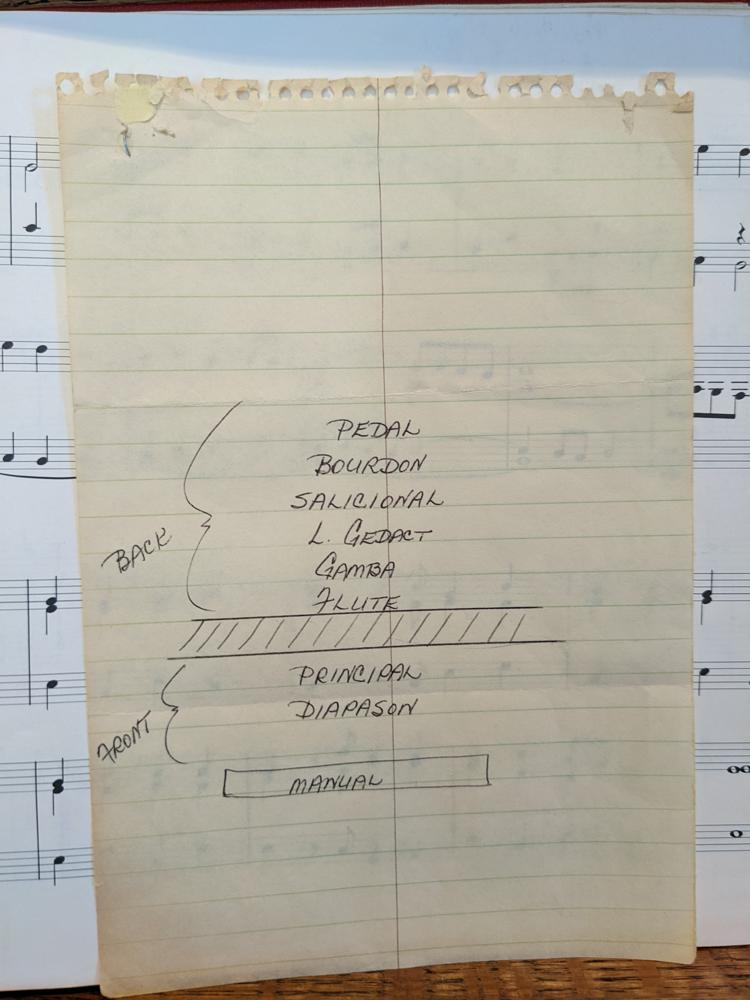 PEDAL
BOURDON
SALICIONAL
L. GEDACT
GAMBA
FLUTE
BACK
PRINCIPAL
DIAPASON
FRONT
MANUAL